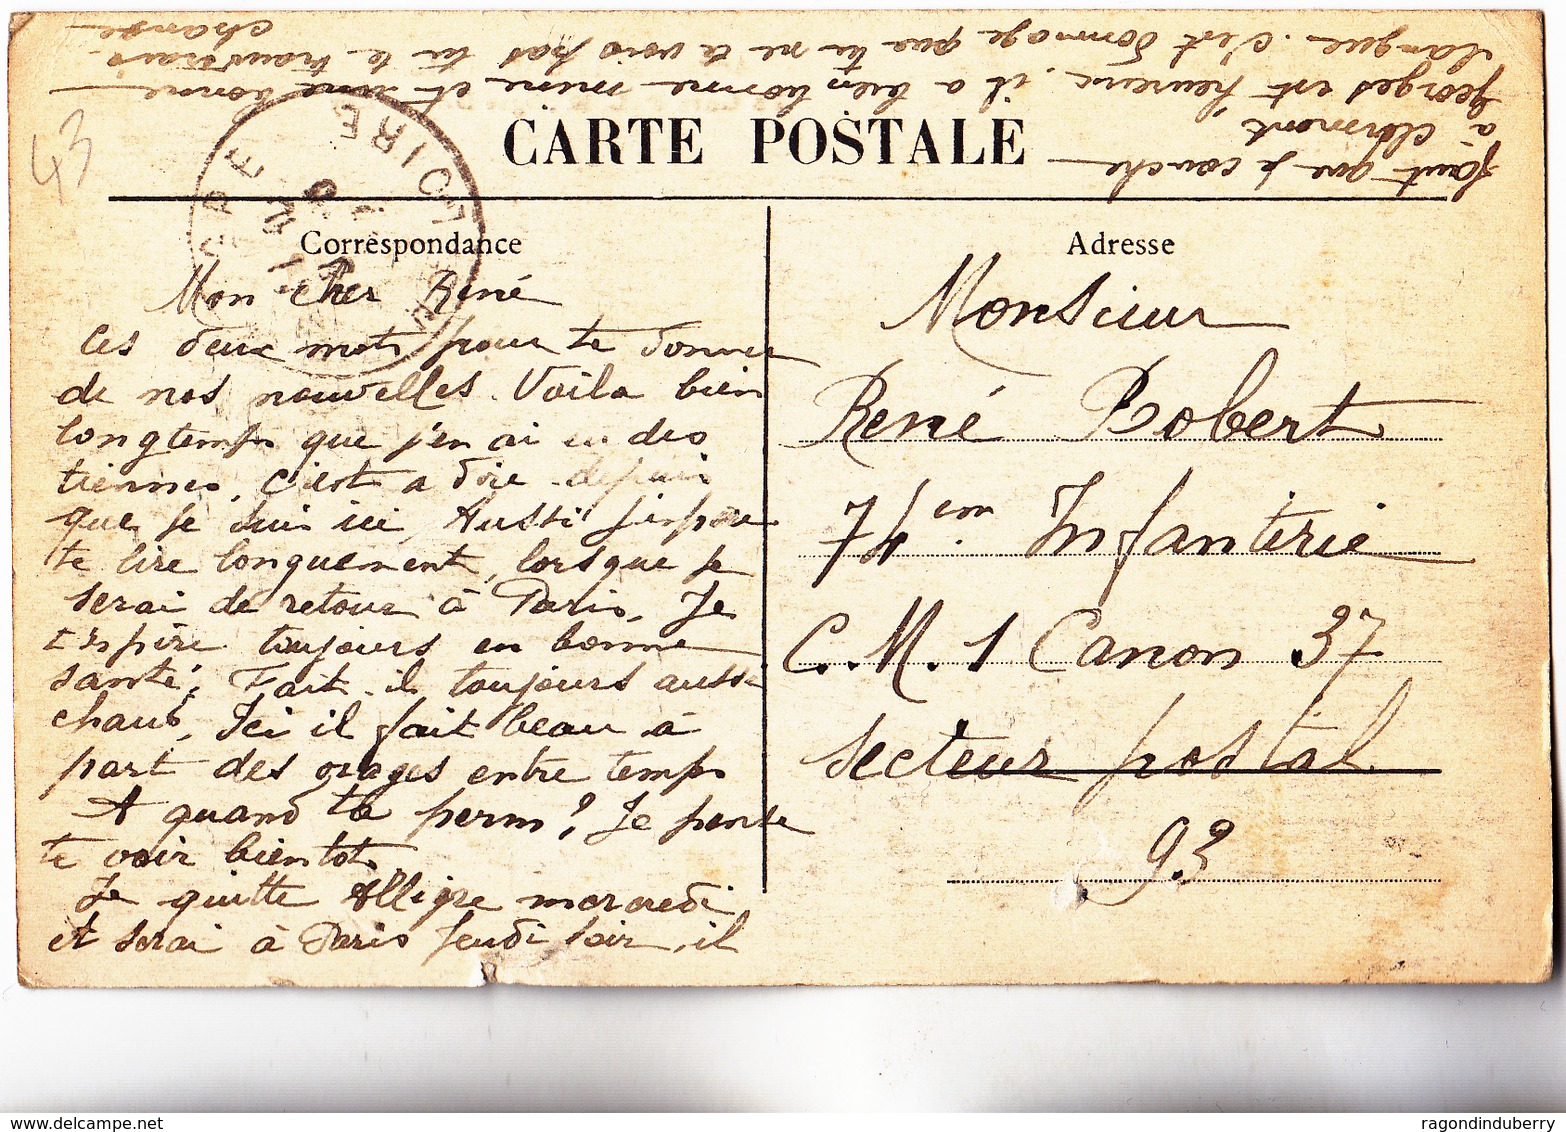 43
CARTE POSTALE
HTE LOIRE
Correspondance
Mon cher René
Ces deux mots pour te donner
de nos nouvelles. Voila bien
longtemps que j'en ai eu des
tiennes, c'est a dire depuis
que je suis ici, Aussi j'espère
te lire longuement, lorsque je
serai de retour à Paris, Je
t'espère toujours en bonne
santé, Fait-il toujours aussi
chaud, Ici il fait beau à
part des orages entre temps
A quand ta perm? Je pense
te voir bientot,
Je quitte Allègre mercredi
et serai à Paris Jeudi soir, il
faut que je couche
à Clermont
Georges est heureux. il a bien bonne mine et une bonne
langue. c'est dommage que tu ne le vois pas tu le trouverais
changé
Adresse
Monsieur
René Robert
74em Infanterie
C.M.1 Canon 37
Secteur postal
93
Delcampe.net
ragondinduberry